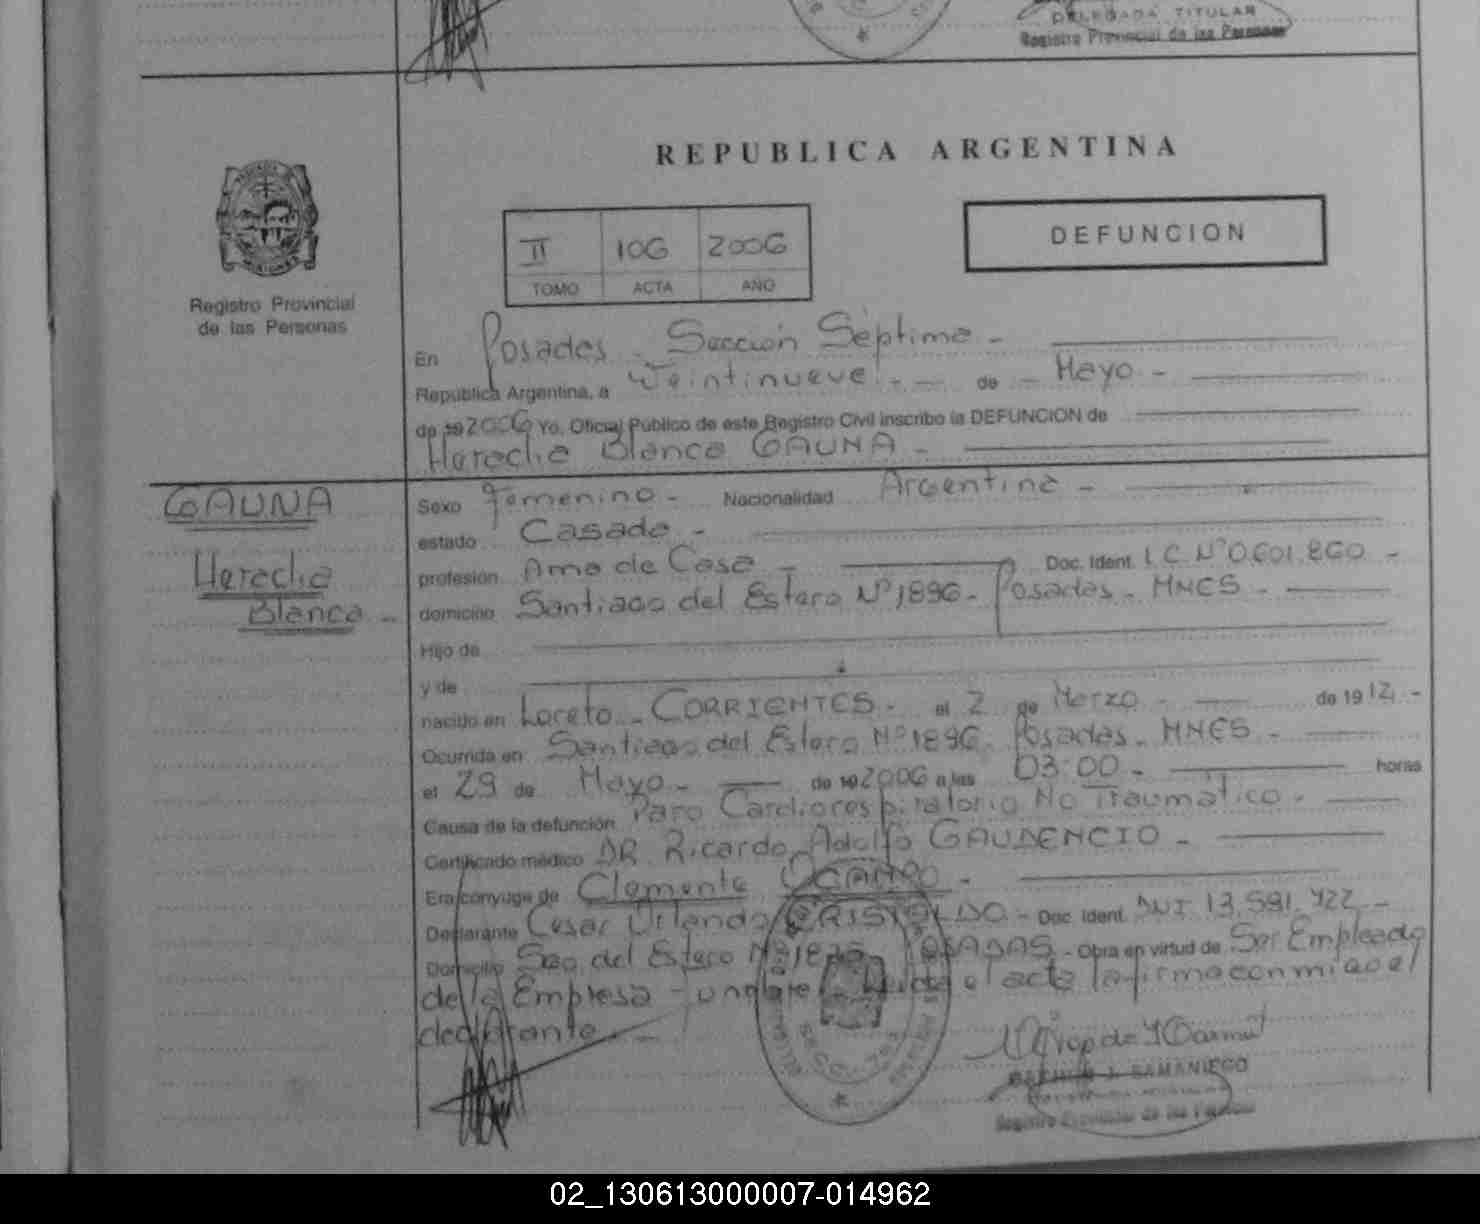 DELEGADA TITULAR
Registro Provincial de las Personas
REPUBLICA ARGENTINA
II 106 2006
TOMO ACTA AÑO
DEFUNCION
MISIONES
Registro Provincial
de las Personas
En Posadas - Sección Séptima -
República Argentina, a Veintinueve - de Mayo -
de 19 2006 Yo, Oficial Público de este Registro Civil inscribo la DEFUNCION de
Heraclia Blanca GAUNA -
GAUNA
Heraclia
Blanca -
Sexo Femenino - Nacionalidad Argentina -
estado Casada -
profesión Ama de Casa - Doc. Ident. L.C. Nº 0.601.860 -
domicilio Santiago del Estero Nº 1896 - Posadas - MNES -
Hijo de
y de
nacido en Loreto - CORRIENTES - el 2 de Marzo - de 1912 -
Ocurrida en Santiago del Estero Nº 1896. Posadas - MNES -
el 29 de Mayo - de 19 2006 a las 03:00 - horas
Causa de la defunción Paro Cardiorespiratorio No Traumático -
Certificado médico DR. Ricardo Adolfo GAUDENCIO -
Era cónyuge de Clemente OCAMPO -
Declarante Cesar Orlando CRISTALDO - Doc. Ident. DNI 13.591.422 -
Domicilio Sgo. del Estero Nº POSADAS - Obra en virtud de Ser Empleado
de la Empresa - el acta la firma conmigo el
declarante -
SAMANIEGO
Registro Provincial de las Personas
02_130613000007-014962